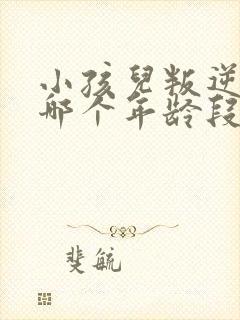 小孩兒叛逆
哪个年龄段
斐毓